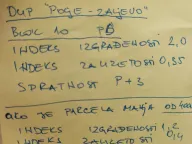 DUP "POGE-ZALJEVO"
BLOK 10 PB
INDEKS IZGRAĐENOSTI 2,0
INDEKS ZAUZETOSTI 0,35
SPRATNOST P+3
AKO JE PARCELA MANJA OD
INDEKS IZGRAĐENOSTI 1,2
INDEKS ZAUZETOSTI 0,4